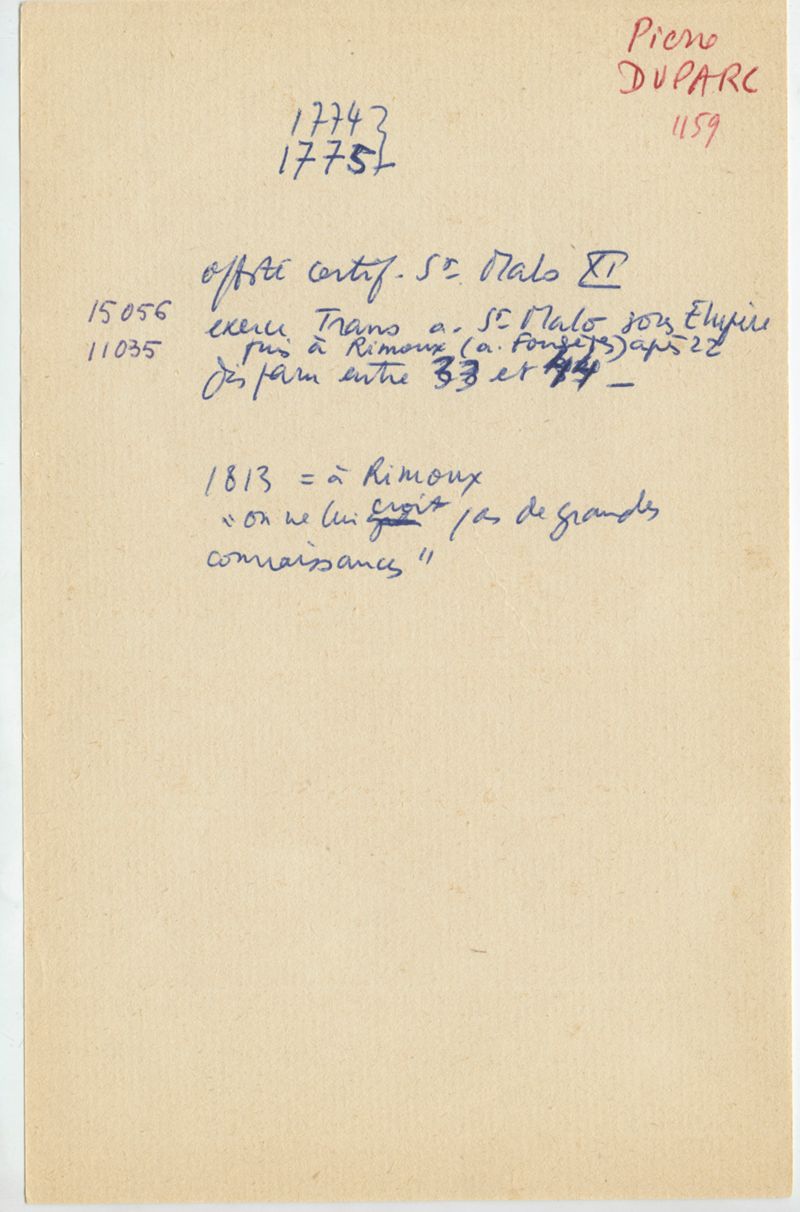 Pierre
DUPARC
1159
1774}
1775}
off. St certif. St Malo XI
15056 exerce Trans a. St Malo sous Empire
11035 puis à Rimoux (a. Fougères) après 22
disparu entre 33 et 44 _
1813 = à Rimoux
"on ne lui croit pas de grandes
connaissances"